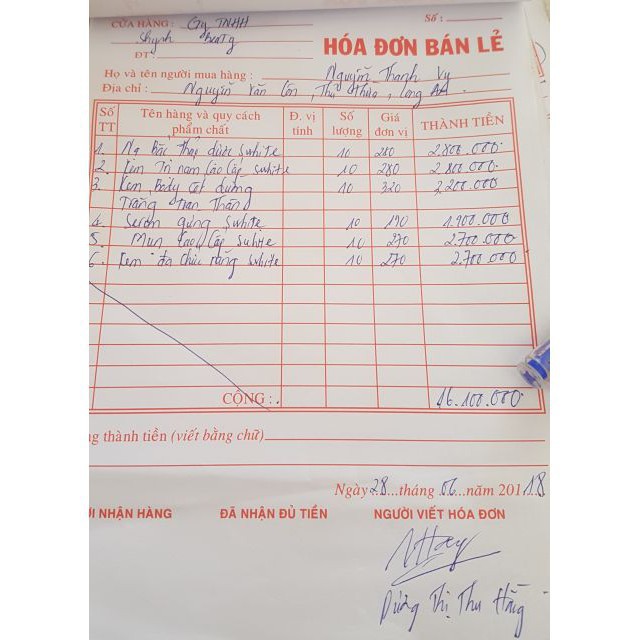 CỬA HÀNG : Cty TNHH
Số :
ĐT:
HÓA ĐƠN BÁN LẺ
Họ và tên người mua hàng : Nguyễn Thanh Vy
Địa chỉ : Nguyễn Văn Côn, Thủ Thừa, Long An
Số TT Tên hàng và quy cách phẩm chất Đ. vị tính Số lượng Giá đơn vị THÀNH TIỀN
1. Swhite 10 280 2.800.000
2. Kem Trị nám Cao Cấp Swhite 10 280 2.800.000
3. Kem Body 10 320 3,200.000
Trắng
4. Serum gừng Swhite 10 190 1.900.000
5. Mụn Cao Cấp Swhite 10 270 2.700.000
6. Kem đa chức năng Swhite 10 270 2.700.000
CỘNG : 16.100.000
g thành tiền (viết bằng chữ)
Ngày 28 tháng 06 năm 201 18
I NHẬN HÀNG ĐÃ NHẬN ĐỦ TIỀN NGƯỜI VIẾT HÓA ĐƠN
Dương Thị Thu Hằng